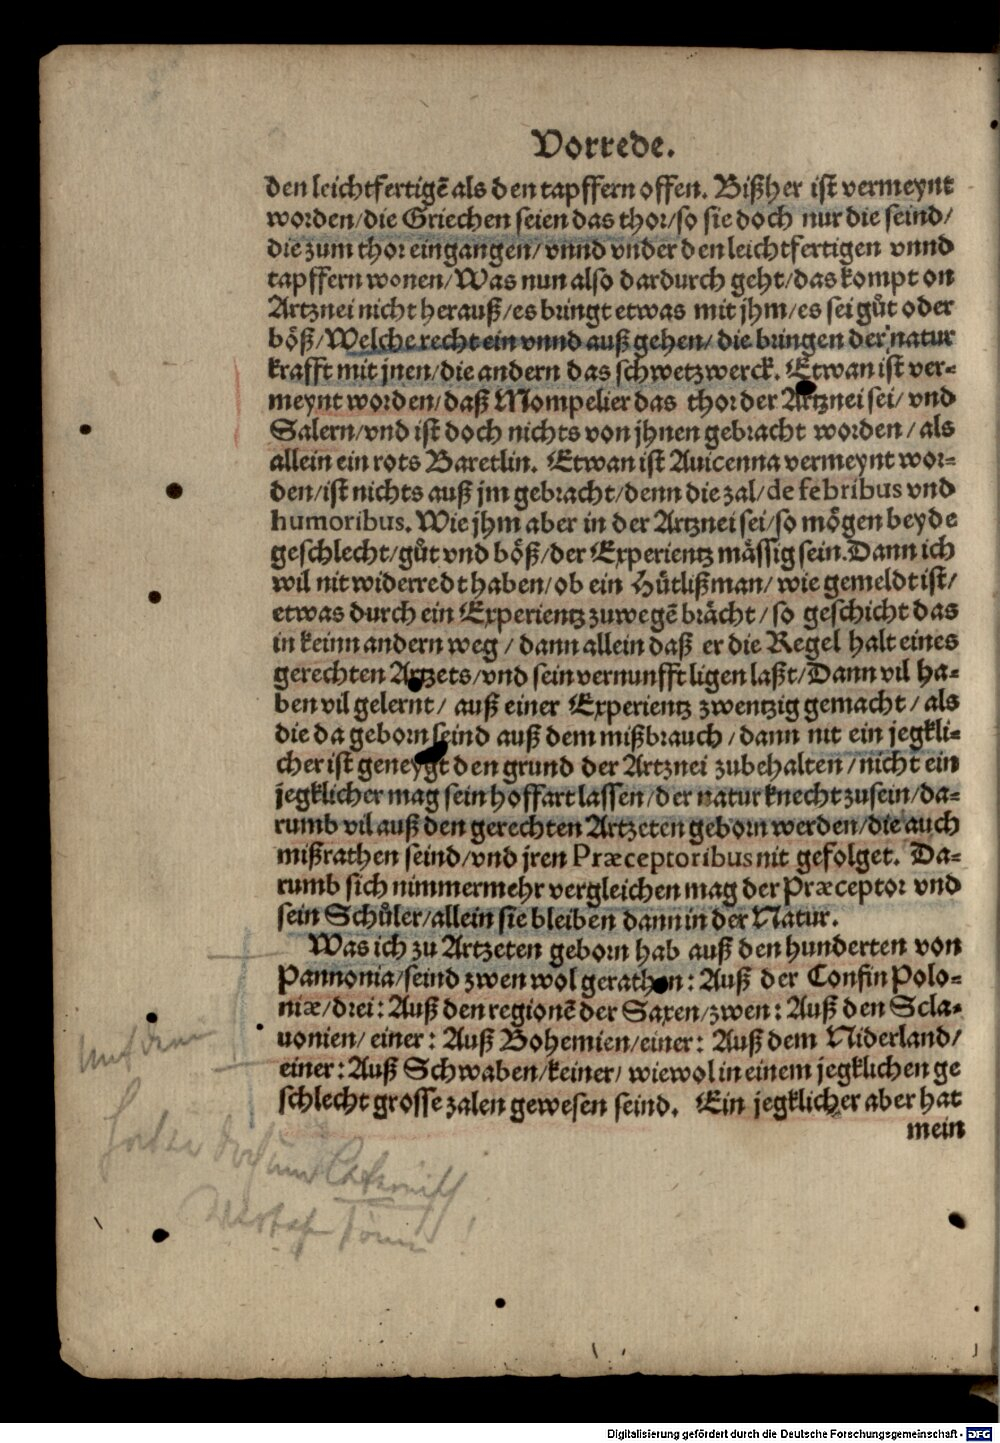 Vorrede.
den leichtfertigẽ als den tapffern offen. Bißher ist vermeynt
worden/die Griechen seien das thor/so sie doch nur die seind/
die zum thor eingangen/vnnd vnder den leichtfertigen vnnd
tapffern wonen/Was nun also dardurch geht/das kompt on
Artznei nicht herauß/es bringt etwas mit jhm/es sei gůt oder
böß/Welche recht ein vnnd auß gehen/die bringen der natur
krafft mit jnen/die andern das schwetzwerck. Etwan ist ver-
meynt worden/daß Mompelier das thor der Artznei sei/vnd
Salern/vnd ist doch nichts von jhnen gebracht worden/als
allein ein rots Baretlin. Etwan ist Auicenna vermeynt wor-
den/ist nichts auß jm gebracht/denn die zal/de febribus vnd
humoribus. Wie jhm aber in der Artznei sei/so mögen beyde
geschlecht/gůt vnd böß/der Experientz mässig sein. Dann ich
wil nit widerredt haben/ob ein Hütlißman/wie gemeldt ist/
etwas durch ein Experientz zuwegẽ brächt/so geschicht das
in keinn andern weg/dann allein daß er die Regel halt eines
gerechten Artzets/vnd sein vernunfft ligen laßt/Dann vil ha-
ben vil gelernt/auß einer Experientz zwentzig gemacht/als
die da geborn seind auß dem mißbrauch/dann nit ein jegkli-
cher ist geneygt den grund der Artznei zubehalten/nicht ein
jegklicher mag sein hoffart lassen/der natur knecht zusein/da-
rumb vil auß den gerechten Artzeten geborn werden/die auch
mißrathen seind/vnd jren Præceptoribus nit gefolget. Da-
rumb sich nimmermehr vergleichen mag der Præceptor vnd
sein Schůler/allein sie bleiben dann in der Natur.
Was ich zu Artzeten geborn hab auß den hunderten von
Pannonia/seind zwen wol gerathen: Auß der Confin Polo-
niæ/drei: Auß den regionẽ der Saxen/zwen: Auß den Scla-
uonien/einer: Auß Bohemien/einer: Auß dem Niderland/
einer: Auß Schwaben/keiner/wiewol in einem jegklichen ge
schlecht grosse zalen gewesen seind. Ein jegklicher aber hat
mein
Digitalisierung gefördert durch die Deutsche Forschungsgemeinschaft - DFG